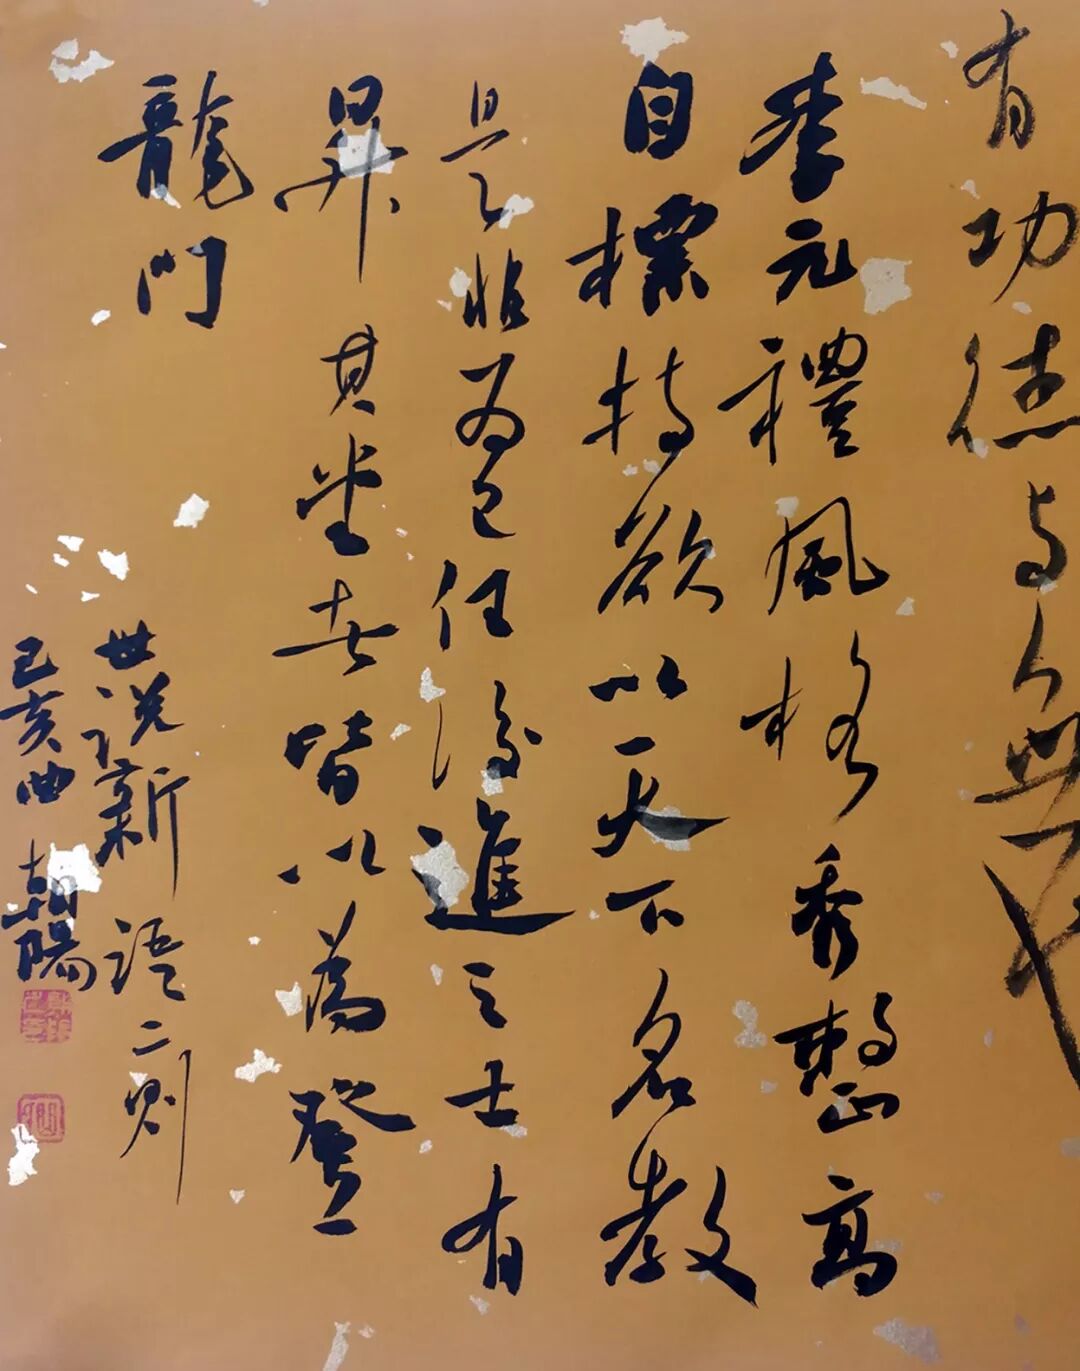 有功德与無也
李元禮風格秀整高
自標持欲以天下名教
是非为己任後進之士有
昇其堂者皆以為登
龍門
世说新語二則
己亥曲朝陽